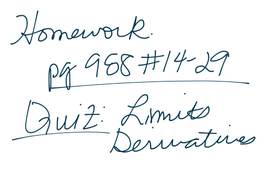 Homework.
pg 988 #14-29
Quiz: Limits
Derivatives